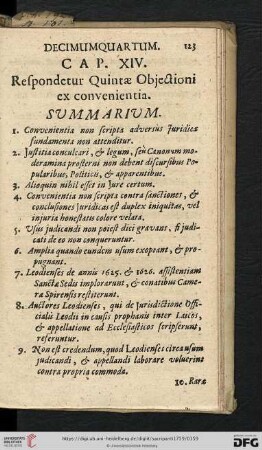 DECIMUMQUARTUM. 123
CAP. XIV.
Respondetur Quintæ Objectioni
ex convenientia.
SUMMARIUM.
1. Convenientia non scripta adversus Juridica
fundamenta non attenditur.
2. Justitia consulcari, & legum, seu Canonum mo-
deramina prosterni non debent discursibus Po-
pularibus, Politicis, & apparentibus.
3. Alioquin nihil esset in Jure certum.
4. Convenientia non scripta contra sanctiones, &
conclusiones Juridicas est duplex iniquitas, vel
injuria honestatis colore velata.
5. Usus judicandi non potest dici gravans, si judi-
cati de eo non conqueruntur.
6. Amplia quando eundem usum exoptant, & pro-
pugnant.
7. Leodienses de annis 1625. & 1626. assistentiam
Sanctæ Sedis implorarunt, & conatibus Came-
ræ Spirensis restiterunt.
8. Auctores Leodienses, qui de jurisdictione Offi-
cialis Leodii in causis prophanis inter Laicos,
& appellatione ad Ecclesiasticos scripserunt,
referuntur.
9. Non est credendum, quod Leodienses circa usum
judicandi, & appellandi laborare voluerint
contra propria commoda.
10. Raræ
https://digi.ub.uni-heidelberg.de/diglit/sacripanti1713/0159
© Universitätsbibliothek Heidelberg
gefördert durch die
DFG